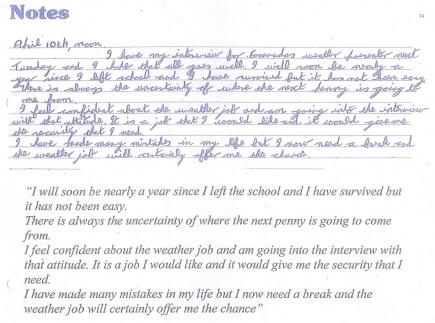 Notes
11
April 10th, noon.
I have my interview for Granadas weather presenter next
Tuesday and I hope that all goes well. I will soon be nearly a
year since I left school and I have survived but it has not been easy.
There is always the uncertainty of where the next penny is going to
come from.
I feel confident about the weather job and am going into the interview
with that attitude. It is a job that I would like and it would give me
the security that I need.
I have made many mistakes in my life but I now need a break and
the weather job will certainly offer me the chance.
"I will soon be nearly a year since I left the school and I have survived but
it has not been easy.
There is always the uncertainty of where the next penny is going to come
from.
I feel confident about the weather job and am going into the interview with
that attitude. It is a job I would like and it would give me the security that I
need.
I have made many mistakes in my life but I now need a break and the
weather job will certainly offer me the chance"